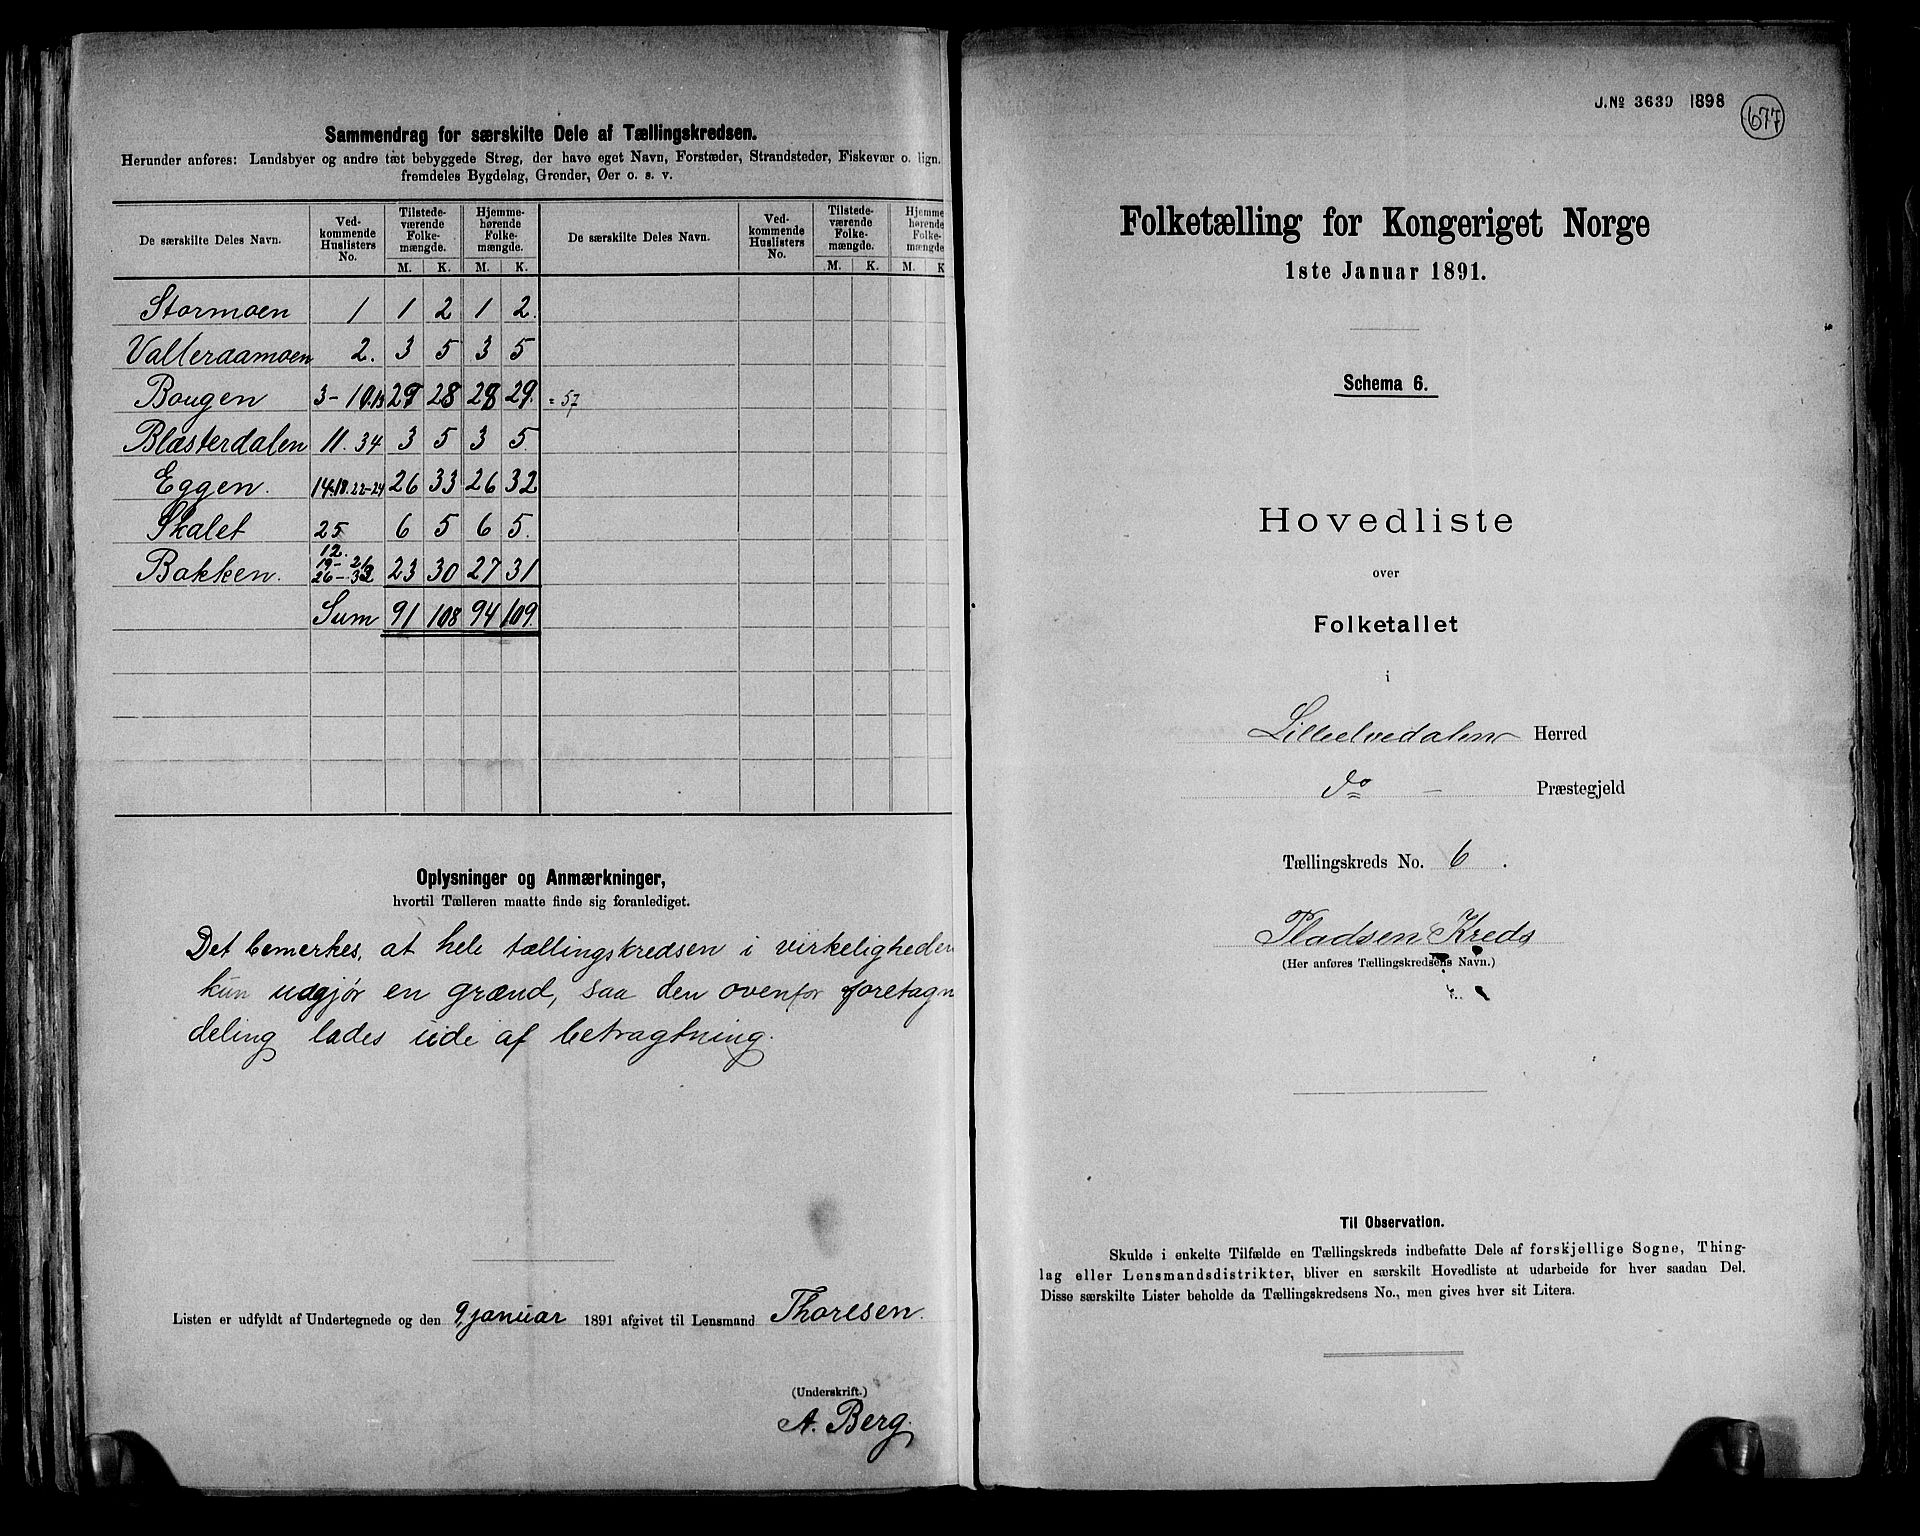 Sammendrag for særskilte Dele af Tællingskredsen.
Herunder anføres: Landsbyer og andre tæt bebyggede Strøg, der have eget Navn, Forstæder, Strandsteder, Fiskevær o. lign.
fremdeles Bygdelag, Grender, Øer o. s. v.
De særskilte Deles Navn. Ved-kommende Huslisters No. Tilstede-værende Folke-mængde. Hjemme-hørende Folke-mængde. De særskilte Deles Navn. Ved-kommende Huslisters No. Tilstede-værende Folke-mængde. Hjemme-hørende Folke-mængde
M. K. M. K. M. K. M. K
Stormoen 1 1 2 1 2.
Valteraamoen 2. 3 5 3 5
Bougen 3-10.13 29 28 28 29. = 57
Blæsterdalen 11. 34 3 5 3 5.
Eggen. 14-18. 22-24 26 33 26 32
Skalet 25 6 5 6 5.
Bakken. 12. 19-21 26-33 23 30 27 31
Sum 91 108 94 109.
Oplysninger og Anmærkninger,
hvortil Tælleren maatte finde sig foranlediget.
Det bemerkes, at hele tællingskredsen i virkeligheden
kun udgjør en grænd, saa den ovenfor foretagn
deling lades ude af betragtning.
Listen er udfyldt af Undertegnede og den 9. januar 1891 afgivet til Lensmand Thoresen.
(Underskrift.)
A. Berg.
J. No 3630 1898 677
Folketælling for Kongeriget Norge
1ste Januar 1891.
Schema 6.
Hovedliste
over
Folketallet
i
Lilleelvedalens Herred
do - Præstegjeld
Tællingskreds No. 6.
Pladsen Kreds
(Her anføres Tællingskredsens Navn.)
Til Observation.
Skulde i enkelte Tilfælde en Tællingskreds indbefatte Dele af forskjellige Sogne, Thing-
lag eller Lensmandsdistrikter, bliver en særskilt Hovedliste at udarbeide for hver saadan Del.
Disse særskilte Lister beholde da Tællingskredsens No., men gives hver sit Litera.